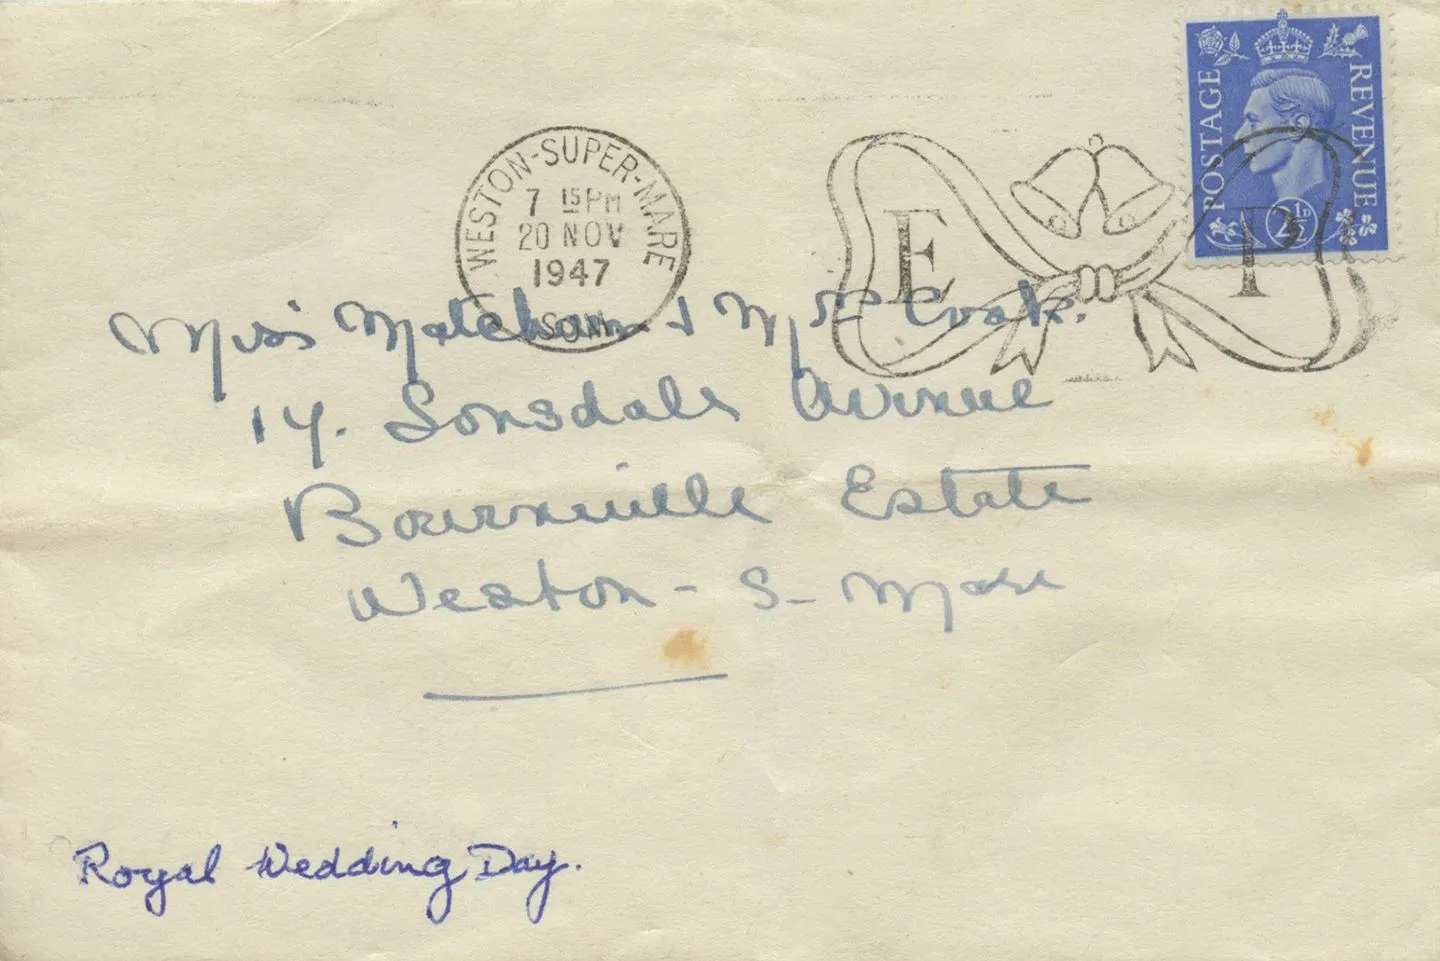 POSTAGE REVENUE
2½D
WESTON-SUPER-MARE
7 15 PM
20 NOV
1947
SOM
E P
Miss Matcham & Mrs Cook.
14. Lonsdale Avenue
Bournville Estate
Weston - S - Mare
Royal Wedding Day.